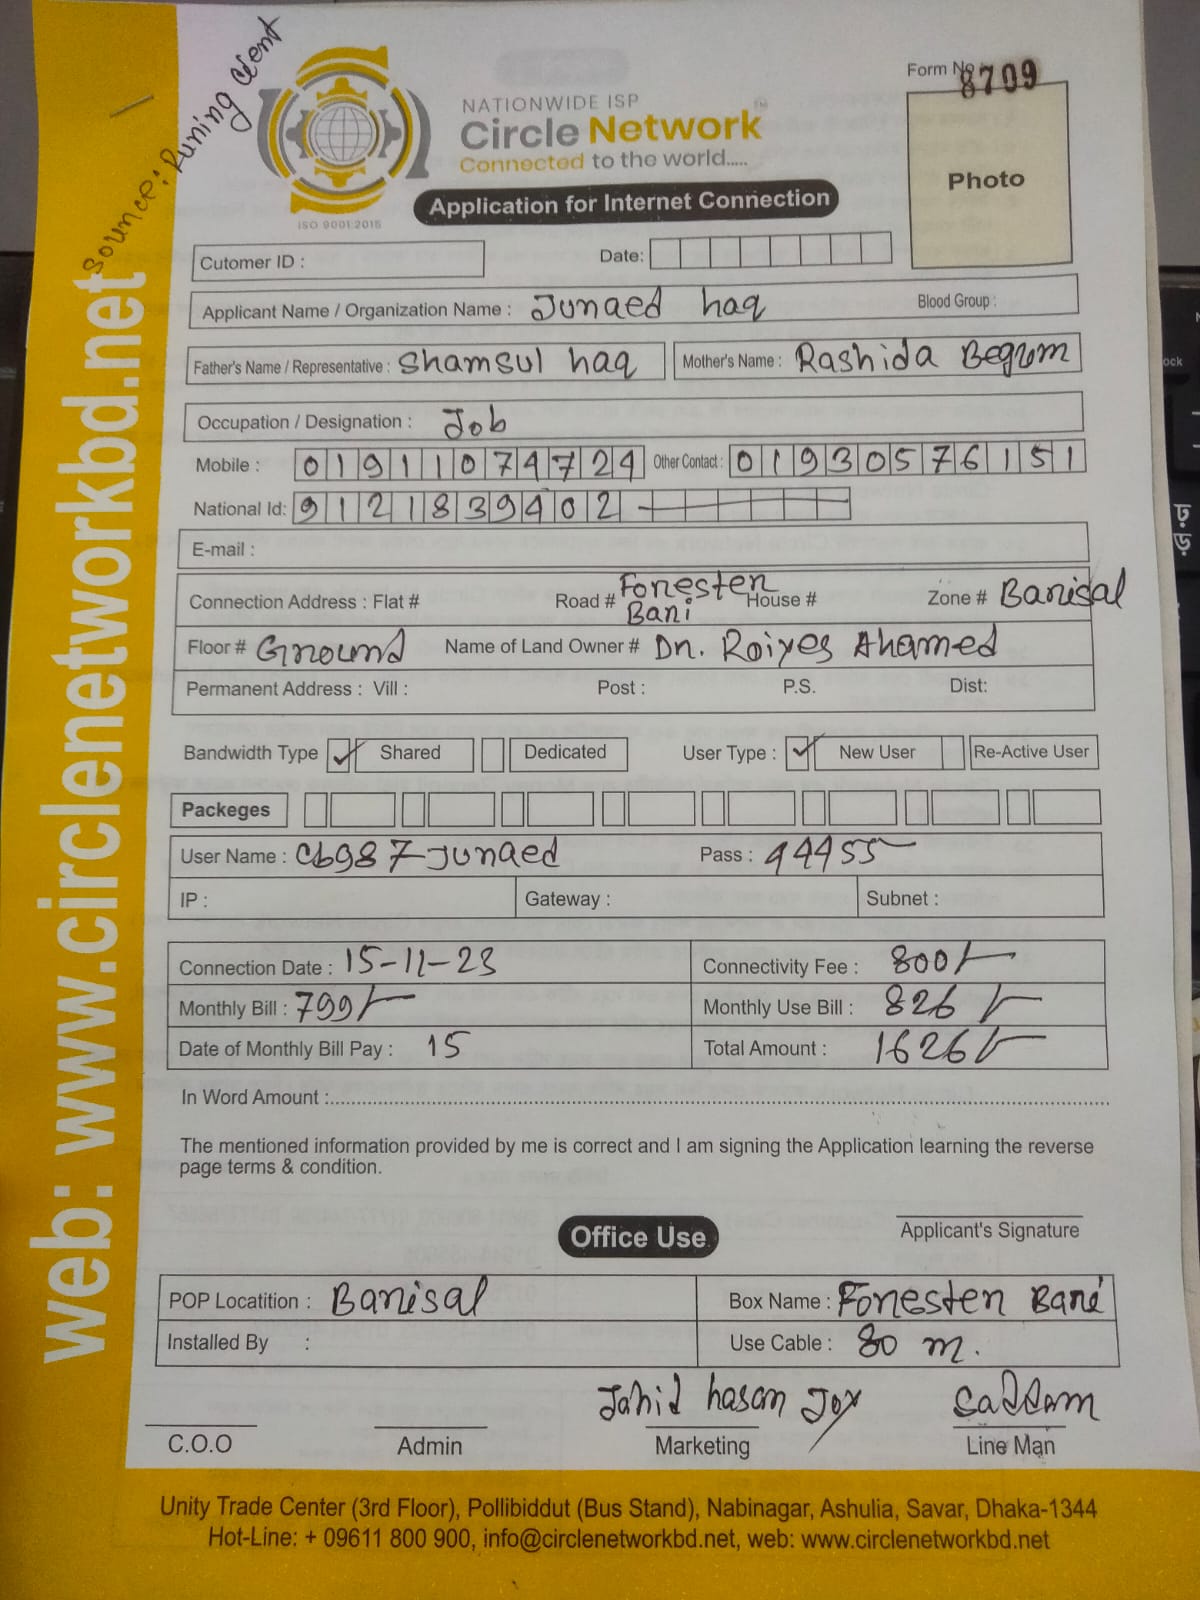 Sounce: Runing client
Form No 8709
NATIONWIDE ISP
Circle Network™
Connected to the world.....
Photo
Application for Internet Connection
ISO 9001:2015
Cutomer ID :
Date:
Applicant Name / Organization Name : Junaed haq Blood Group :
Father's Name / Representative : Shamsul haq Mother's Name : Rashida Begum
Occupation / Designation : Job
Mobile : 01911074724 Other Contact : 01930576151
National Id: 9121839402
E-mail :
Connection Address : Flat # Road # Fonesten Bani House # Zone # Banisal
Floor # Gnound Name of Land Owner # Dn. Roiyes Ahamed
Permanent Address : Vill : Post : P.S. Dist:
Bandwidth Type ✓ Shared Dedicated User Type : ✓ New User Re-Active User
Packeges
User Name : Cb987-Junaed Pass : 44455
IP : Gateway : Subnet :
Connection Date : 15-11-23 Connectivity Fee : 800/-
Monthly Bill : 799/- Monthly Use Bill : 826/-
Date of Monthly Bill Pay : 15 Total Amount : 1626/-
In Word Amount :
The mentioned information provided by me is correct and I am signing the Application learning the reverse
page terms & condition.
Applicant's Signature
Office Use
POP Locatition : Banisal Box Name : Fonesten Bani
Installed By : Use Cable : 80 m.
Jahid hasan Joy Saddam
C.O.O Admin Marketing Line Man
Unity Trade Center (3rd Floor), Pollibiddut (Bus Stand), Nabinagar, Ashulia, Savar, Dhaka-1344
Hot-Line: + 09611 800 900, info@circlenetworkbd.net, web: www.circlenetworkbd.net
web: www.circlenetworkbd.net